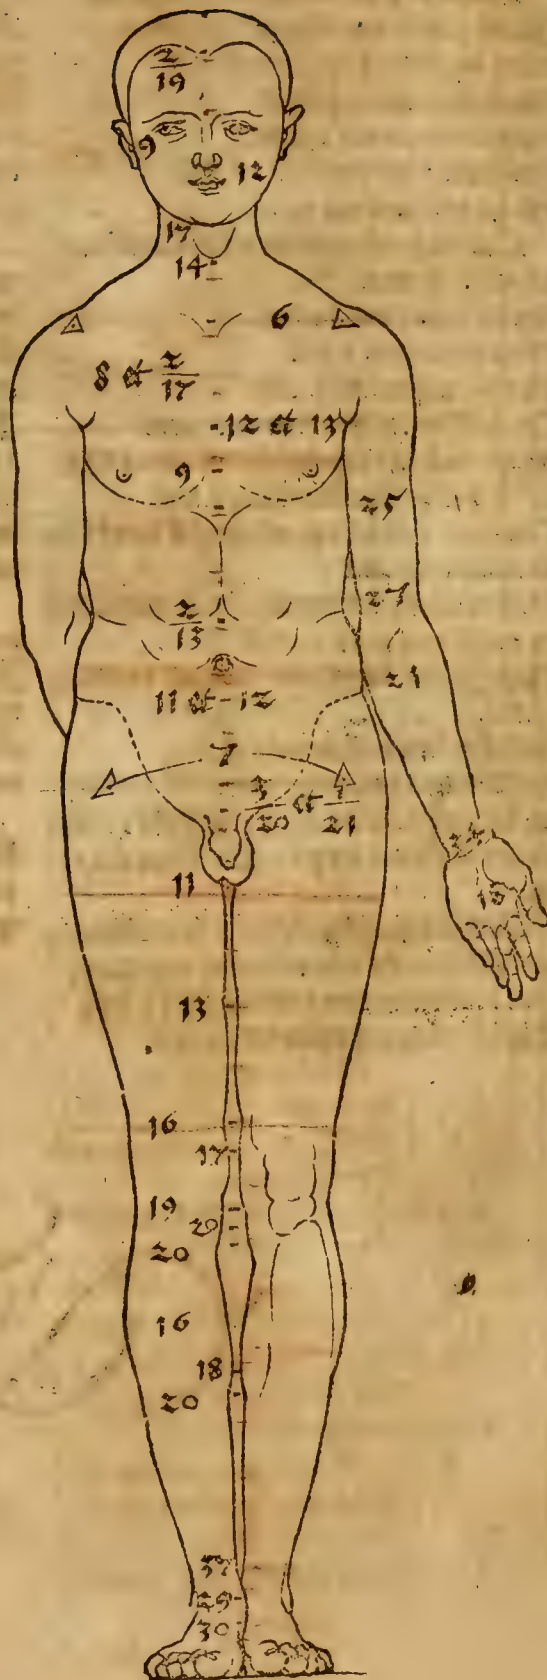 2/19
9
12
17
14
6
8 et 2/17
12 et 13
9
25
27
2/13
21
11 et 12
7
3/20 et 1/21
11
13
16
17
19
20
20
16
18
20
30